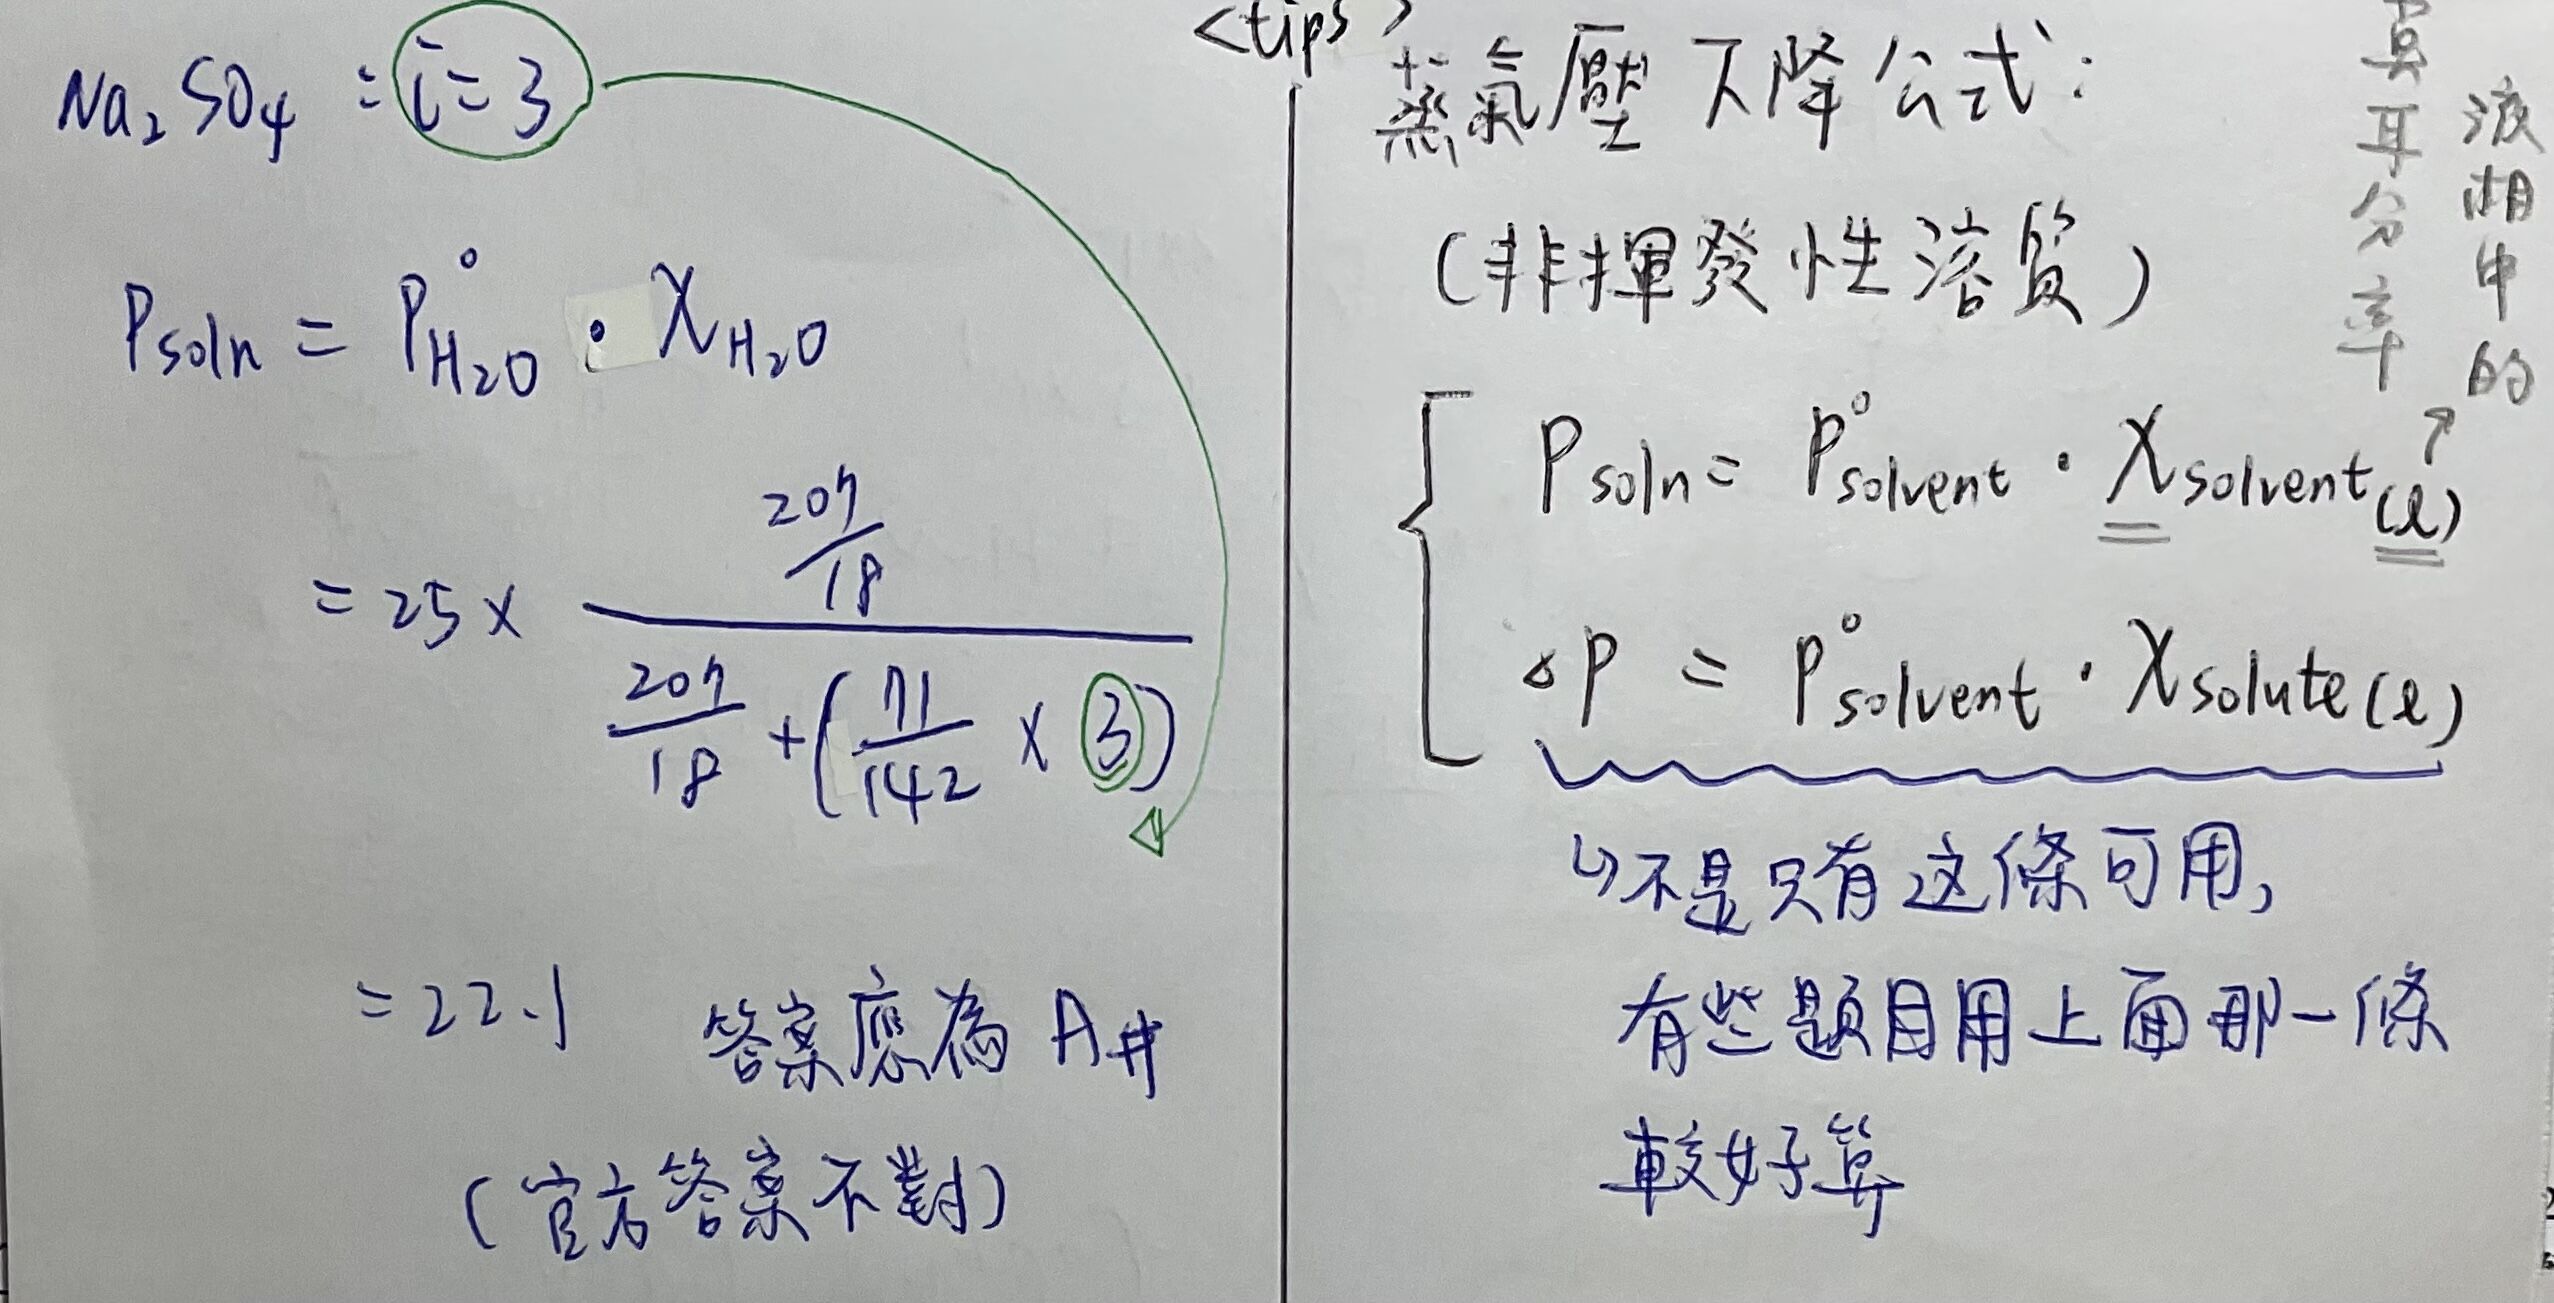 Na₂SO₄ : i = 3
Psoln = P°H₂O · XH₂O
= 25 × (207/18) / (207/18 + (71/142 × 3))
= 22.1 答案應為 A#
(官方答案不對)
<tips>
蒸氣壓下降公式:
(非揮發性溶質)
液相中的
莫耳分率
Psoln = P°solvent · Xsolvent(l)
△P = P°solvent · Xsolute(l)
↳不是只有这條可用,
有些題目用上面那一條
較好算